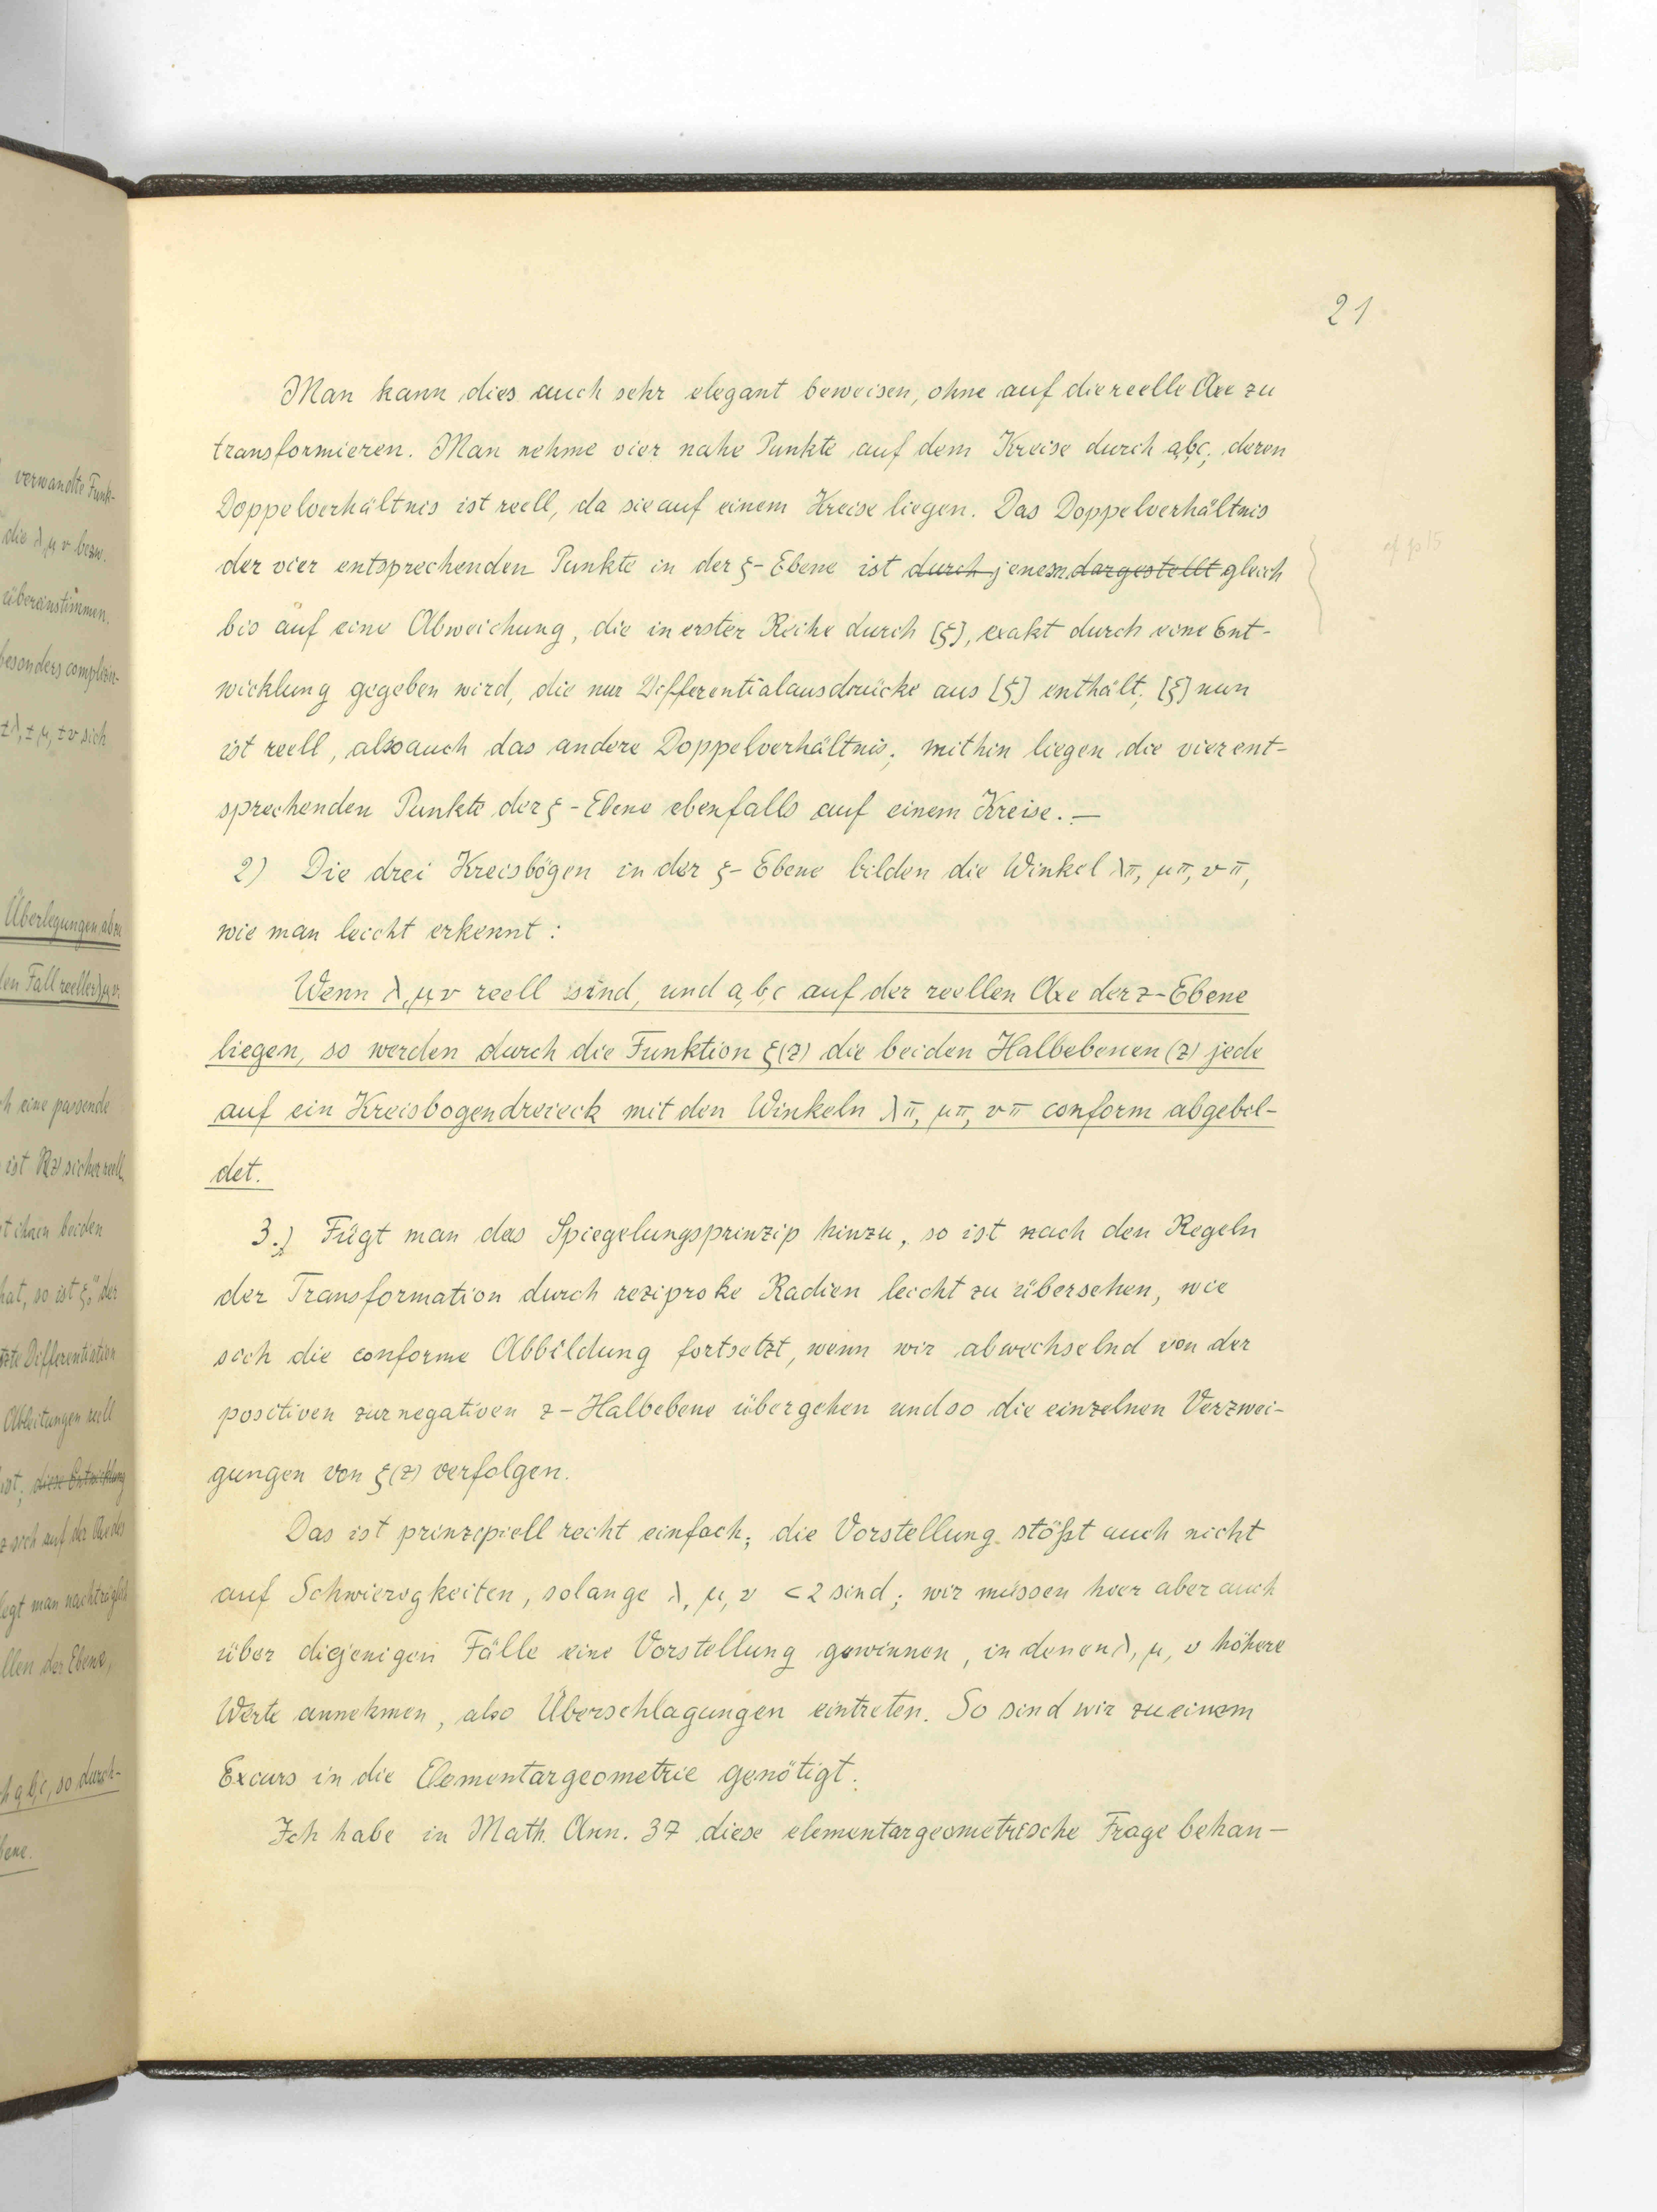 verwandte Funk-
die λ μ ν bezw.
überanstimmen.
besonders
±λ, ±μ, ±ν sich
Überlegungen
Fall reeller λ μ ν
eine passende
ist R(z) sicher reell
beiden
hat, so ist der
Differentiation
Ableitungen reell
ist; diese Entwicklung
sich auf der Axe des
legt man nachträglich
der Ebene,
a, b, c, so durch-
21
Man kann dies auch sehr elegant beweisen, ohne auf die reelle Axe zu
transformieren. Man nehme vier nahe Punkte auf dem Kreise durch a,b,c; deren
Doppelverhältnis ist reell, da sie auf einem Kreise liegen. Das Doppelverhältnis
der vier entsprechenden Punkte in der ξ-Ebene ist durch jenem dargestellt gleich
cf p 15
bis auf eine Abweichung, die in erster Reihe durch [ξ], exakt durch eine Ent-
wicklung gegeben wird, die nur Differentialausdrücke aus [ξ] enthält; [ξ] nun
ist reell, also auch das andere Doppelverhältnis; mithin liegen die vier ent-
sprechenden Punkte der ξ-Ebene ebenfalls auf einem Kreise. —
2) Die drei Kreisbögen in der ξ-Ebene bilden die Winkel λπ, μπ, νπ,
wie man leicht erkennt:
Wenn λ, μ, ν reell sind, und a, b, c auf der reellen Axe der z-Ebene
liegen, so werden durch die Funktion ξ(z) die beiden Halbebenen (z) jede
auf ein Kreisbogendreieck mit den Winkeln λπ, μπ, νπ conform abgebil-
det.
3.) Fügt man das Spiegelungsprinzip hinzu, so ist nach den Regeln
der Transformation durch reziproke Radien leicht zu übersehen, wie
sich die conforme Abbildung fortsetzt, wenn wir abwechselnd von der
positiven zur negativen z-Halbebene übergehen und so die einzelnen Verzwei-
gungen von ξ(z) verfolgen.
Das ist prinzipiell recht einfach; die Vorstellung stößt auch nicht
auf Schwierigkeiten, solange λ, μ, ν <2 sind; wir müssen hier aber auch
über diejenigen Fälle eine Vorstellung gewinnen, in denen λ, μ, ν höhere
Werte annehmen, also Überschlagungen eintreten. So sind wir zu einem
Excurs in die Elementargeometrie genötigt.
Ich habe in Math. Ann. 37 diese elementargeometrische Frage behan-